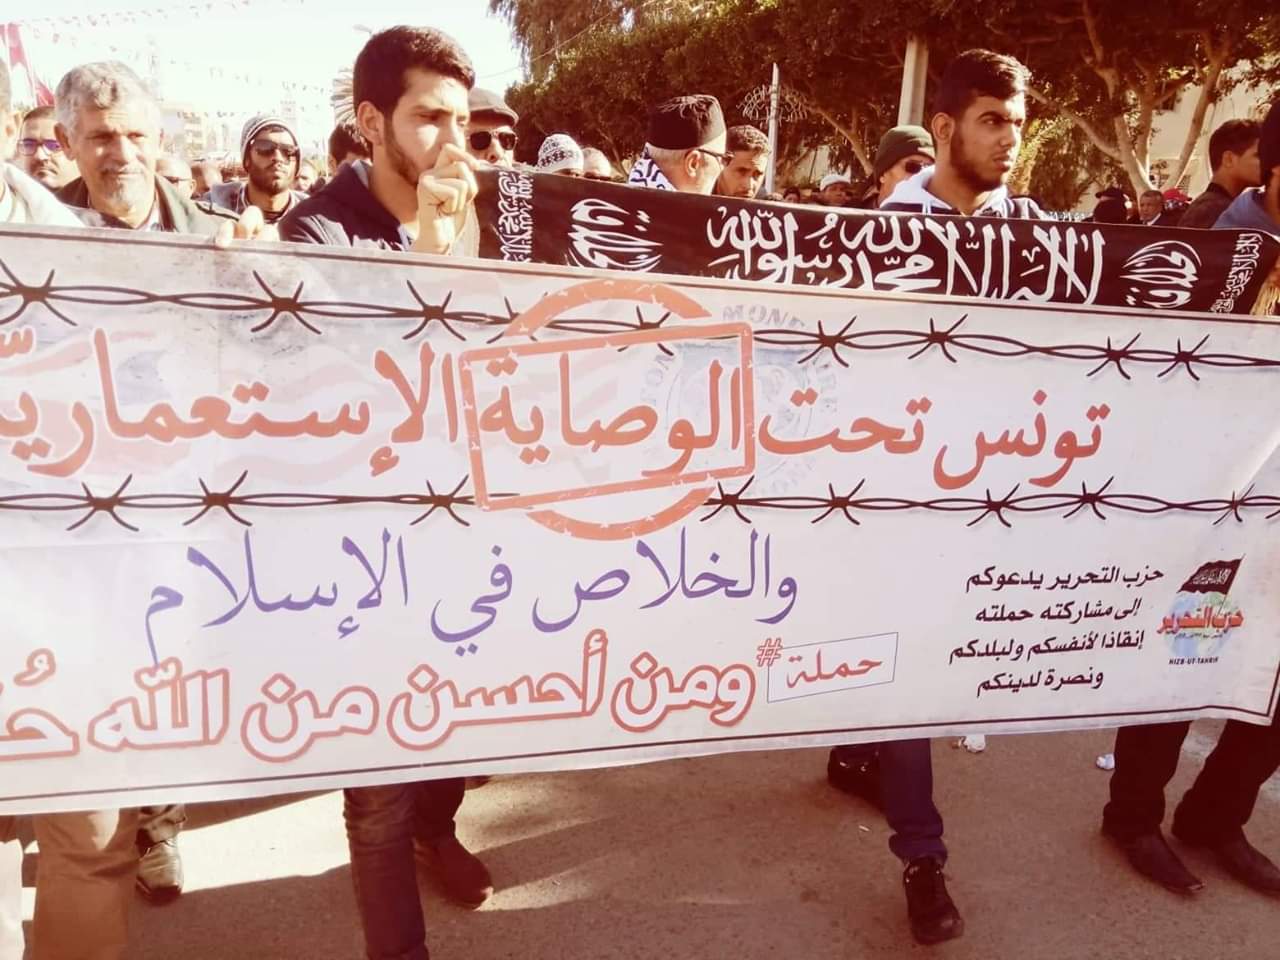 لا إله إلا الله محمد رسول الله
تونس تحت الوصاية الإستعماريّة
والخلاص في الإسلام
#حملة ومن أحسن من الله
حزب التحرير يدعوكم
إلى مشاركته حملته
إنقاذا لأنفسكم ولبلدكم
ونصرة لدينكم
حزب التحرير
HIZB-UT-TAHRIR